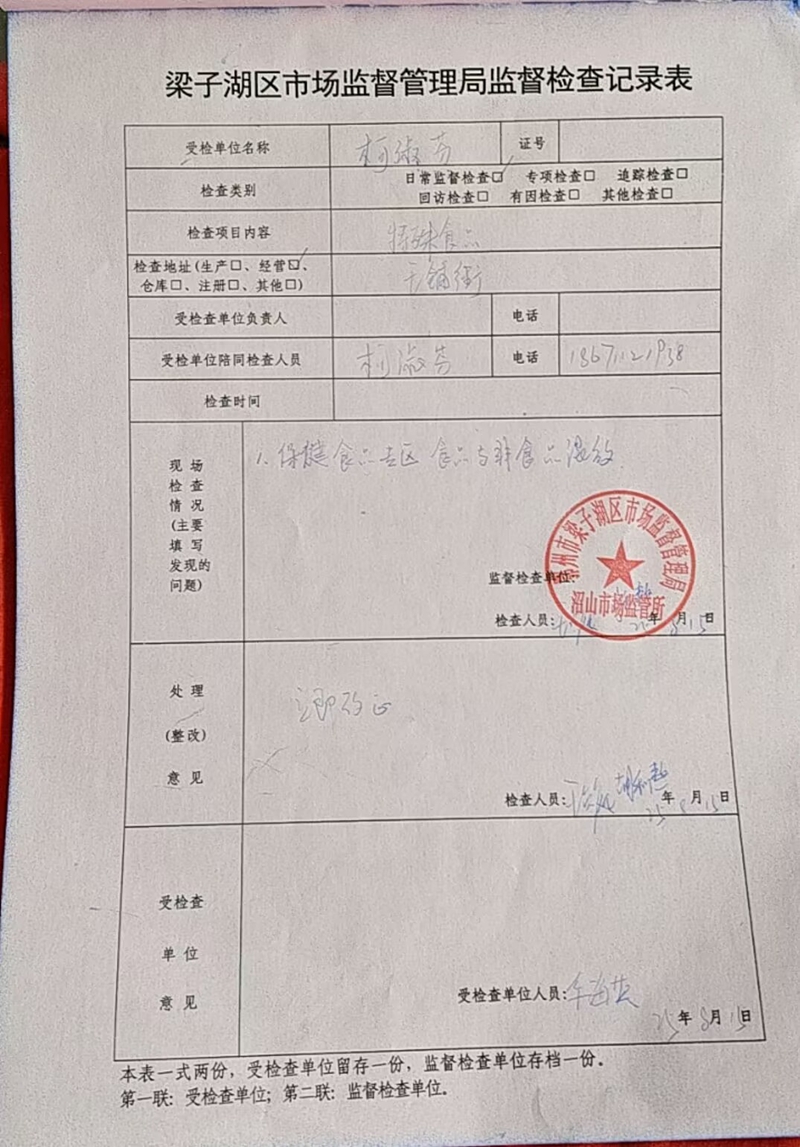 梁子湖区市场监督管理局监督检查记录表
受检单位名称 柯淑芳 证号
检查类别 日常监督检查☑ 专项检查□ 追踪检查□
回访检查□ 有因检查□ 其他检查□
检查项目内容 特殊食品
检查地址(生产□、经营☑、
仓库□、注册□、其他□)
铺街
受检查单位负责人 电话
受检单位陪同检查人员 柯淑芳 电话
检查时间
现场
检查
情况
(主要
填写
发现的
问题)
1、保健食品专区 食品与非食品混放
监督检查单位:
鄂州市梁子湖区市场监督管理局
沼山市场监管所
检查人员: 25年8月15日
处理
(整改)
意见
立即改正
检查人员: 25年8月15日
受检查
单位
意见
受检查单位人员:
25年8月15日
本表一式两份，受检查单位留存一份，监督检查单位存档一份。
第一联：受检查单位；第二联：监督检查单位。